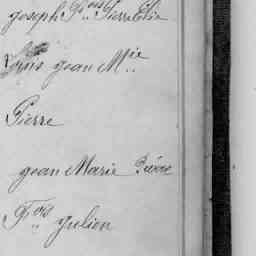 joseph F.ois Pierre Elie
Louis jean M.ie
Pierre
jean Marie Pierre
F.ois julien